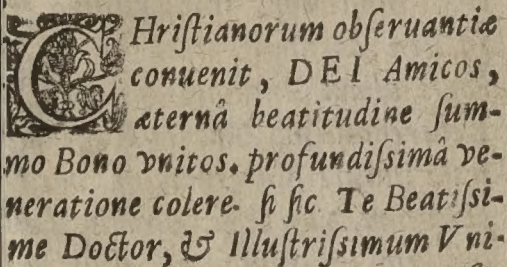 CHriſtianorum obſeruantiæ
conuenit, DEI Amicos,
æternâ beatitudine ſum-
mo Bono vnitos, profundiſsimâ ve-
neratione colere. ſi ſic Te Beatiſsi-
me Doctor, & Illuſtriſsimum Vni-